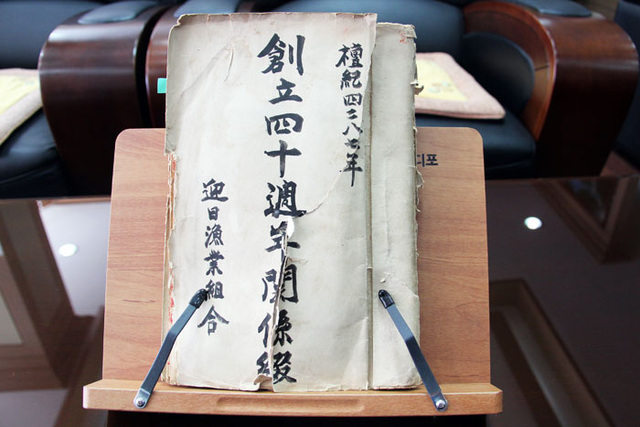 檀紀四二八七年
創立四十週年關係綴
迎日漁業組合
디포